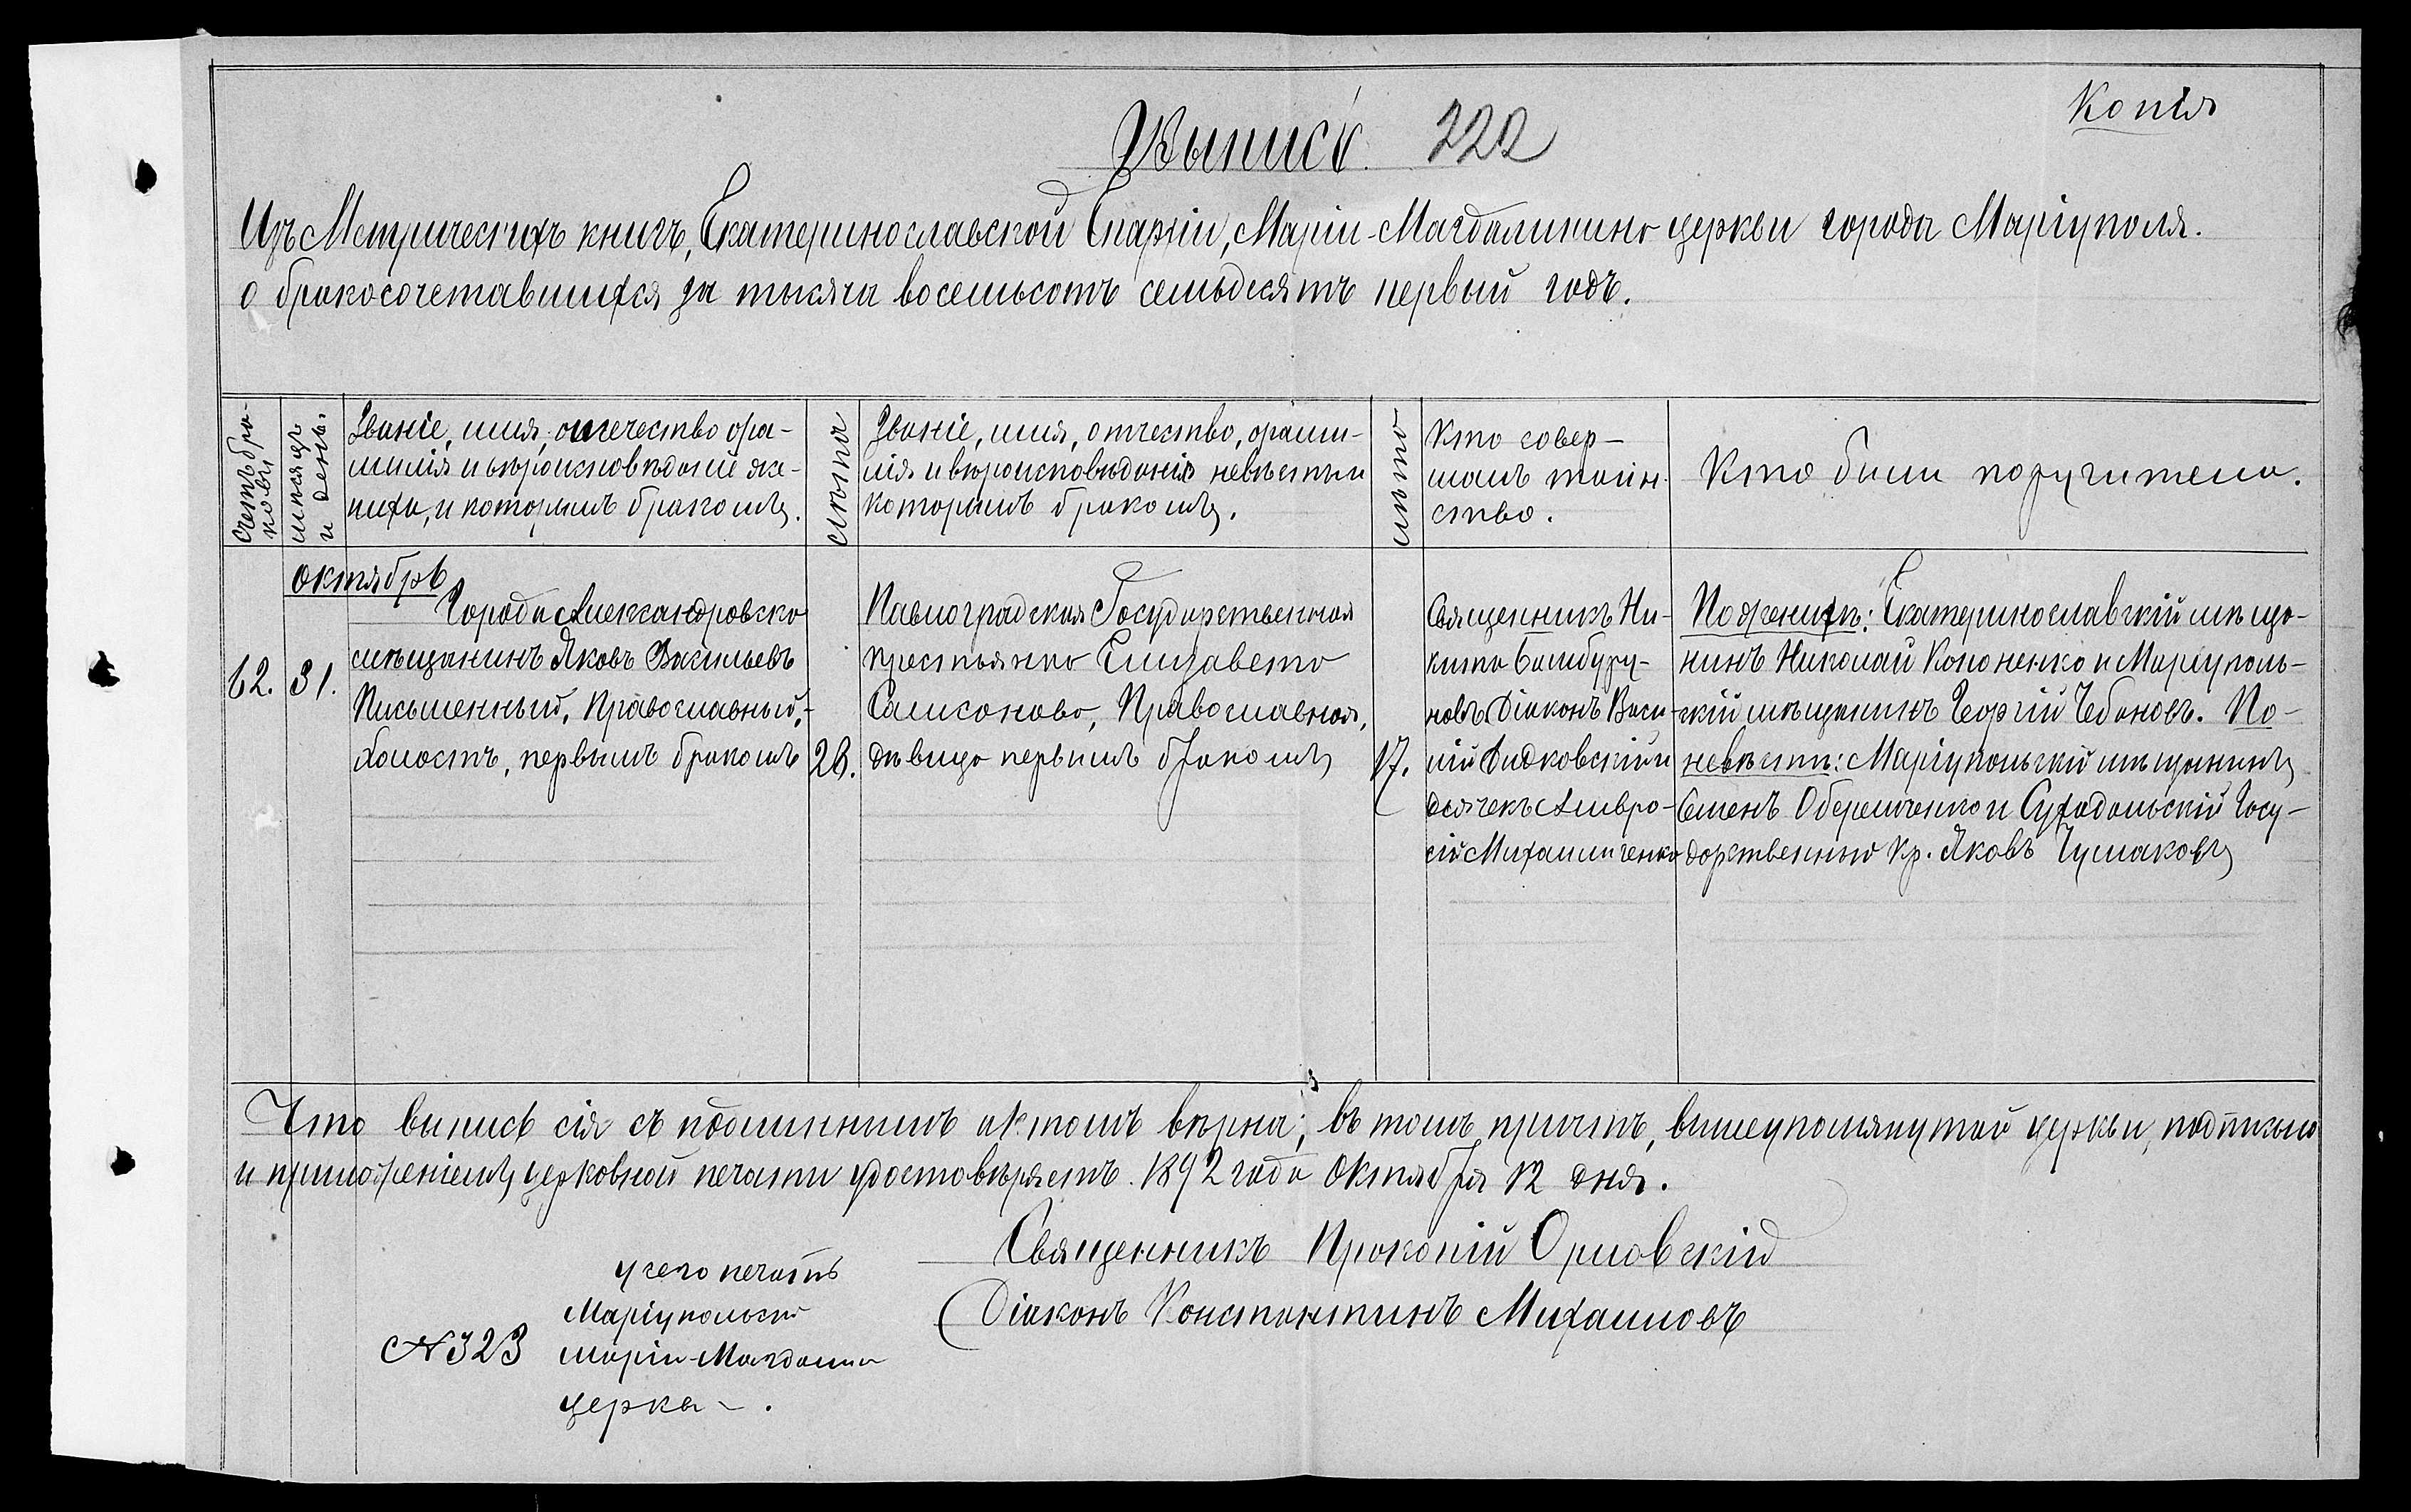 Копія
Выпись. 222
Изъ Метрическихъ книгъ, Екатеринославской Епархіи, Маріи-Магдалинино церкви города Маріуполя.
о бракосочетавшихся за тысяча восемьсотъ семьдесятъ первый годъ.
Счетъ бра-
ковъ,
мѣсяцъ
и день.
Званіе, имя, отчество фа-
милія и вѣроисповѣданіе же-
ниха, и которымъ бракомъ.
лѣта
Званіе, имя, отчество, фами-
лія и вѣроисповѣданія невѣсты и
которымъ бракомъ.
лѣта
Кто совер-
шалъ таин-
ство.
Кто были поручители.
Октябрь
62.
31.
Города Александровска
мѣщанинъ Яковъ Васильевъ
Письменный, Православный,-
холостъ, первымъ бракомъ
28.
Павлоградская Государственная
крестьянка Елизавета
Самсонова, Православная,
дѣвица первымъ бракомъ
17.
Священникъ Ни-
кита
новъ Діаконъ Васи-
лій Дидковскій и
дьячекъ Амвро-
сій Михайличенко
По женихѣ: Екатеринославскій мѣща-
нинъ Николай Кононенко и Маріуполь-
скій мѣщанинъ Георгій Чебановъ. По-
невѣстѣ: Маріупольскій мѣщанинъ
Семенъ Оберемченко и Суходольскій Госу-
дарственный кр. Яковъ Чумаковъ
Что выпись сія съ подлиннымъ актомъ вѣрна; въ томъ причтъ, вышеупомянутой церкви, подписью
и приложеніемъ церковной печати удостовѣряетъ. 1892 года Октября 12 дня.
Священникъ Прокопій Орловскій
Діаконъ Константинъ Михайловъ
у сего печать
Маріупольско
Маріи-Магдалин
церкв-.
№323